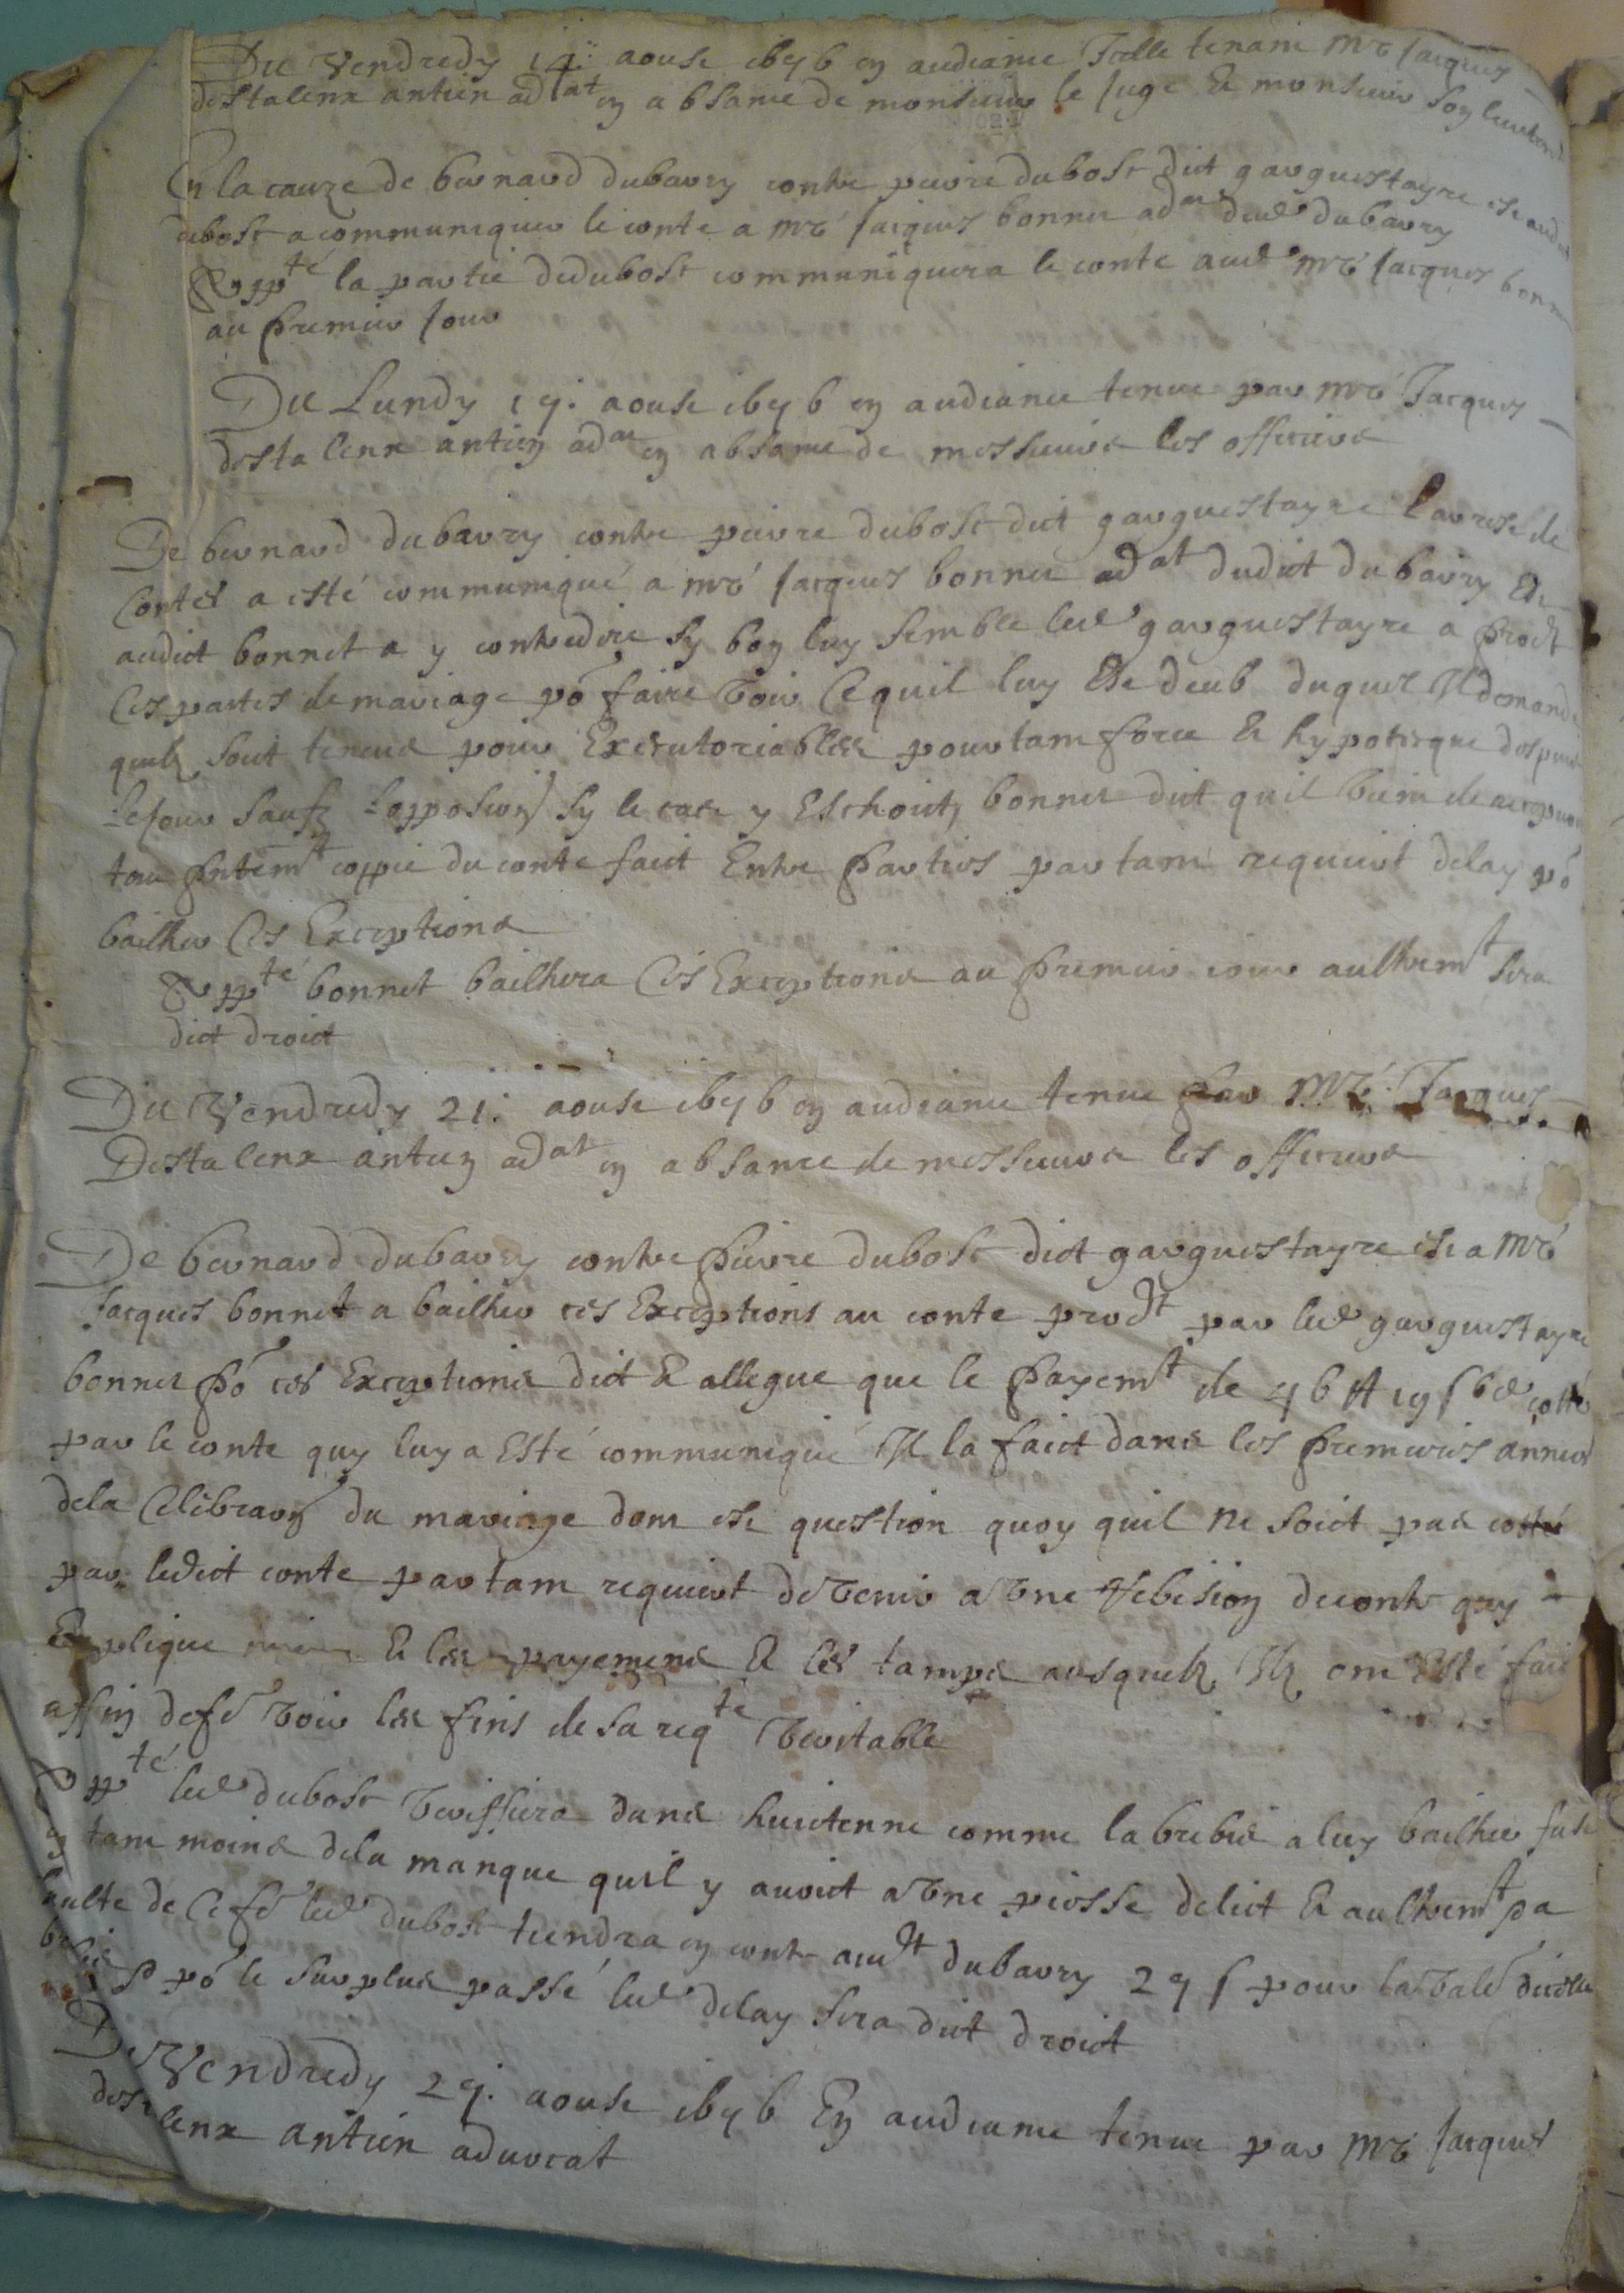 Du Vendredy 14: aoust i6y6 en audiance Icelle tenant Mre Jacques
destalenx antien adlat en absance de monsieur le Juge & monsieur son lieuten
En la cauze de bernard dubarry contre pierre dubosc dict garguestayre est audict
dubosc a communiquer le conte a mre Jacques bonnet adat dud dubarry
Appte la partie dedubosc communiquera le conte aud mre Jacques bonnet
au premier Jour
Du Lundy 17. aoust i6y6 en audiance tenue par mre Jacques
desta lenx antien adat en absance de messieurs les officiers
De bernard dubarry contre pierre dubosc dict garguestayre
Contes a esté communiqué a mre Jacques bonnet adat dudict dubarry Est
audict bonnet a y contredire sy bon luy semble led garguestayre a prodt
Ces pactes de mariage po faire voir Ce quil luy Est deub duquel Il demande
quils soict tenus pour Executoriables pourtant force & hypoteque despuis
Lejour saufz Loppoon sy le cas y Eschoict bonnet dict quil vient de
tout pntemt coppie du conte faict Entre parties partant requiert delay po
bailher Ces Exceptions
Appte bonnet bailhera Ces Exceptions au premier iour aultremt sera
dict droict
Du Vendredy 21: aoust i6y6 en audiance tenue par Mre Jacques
Destalenx antien adat en absance de messieurs les officiers
De bernard dubarry contre pierre dubosc dict garguestayre est a Mre
Jacques bonnet a bailher ces Exceptions au conte prodt par led garguestayre
bonnet po ces Exceptions dict & allegue que le payemt de y6 tt 19 s 6 d cotté
par le conte quy luy a Esté communiqué Il la faict dans les premieres annees
dela Celibraon du mariage dont est question quoy quil ne soict pas cotté
par ledict conte partant requiert de venir a vne Rebision deconte quy
Explique & les payemens & les tamps ausquels Ils ont Esté faict
affin defe voir les fins de sa reqte veritable
Appte led dubosc veriffiera dans huictenne comme la brebis a luy bailhee fust
en tant moins dela manque quil y avoict a vne piesse delict & aultremt pa
faulte de Cefe led dubosc tiendra en conte audt dubarry 27 s pour la vale dicelle
brebis & po le surplus passé led delay sera dict droict
Du Vendredy 27. aoust i6y6 En audiance tenue par Mre Jacques
destalenx antien aduocat